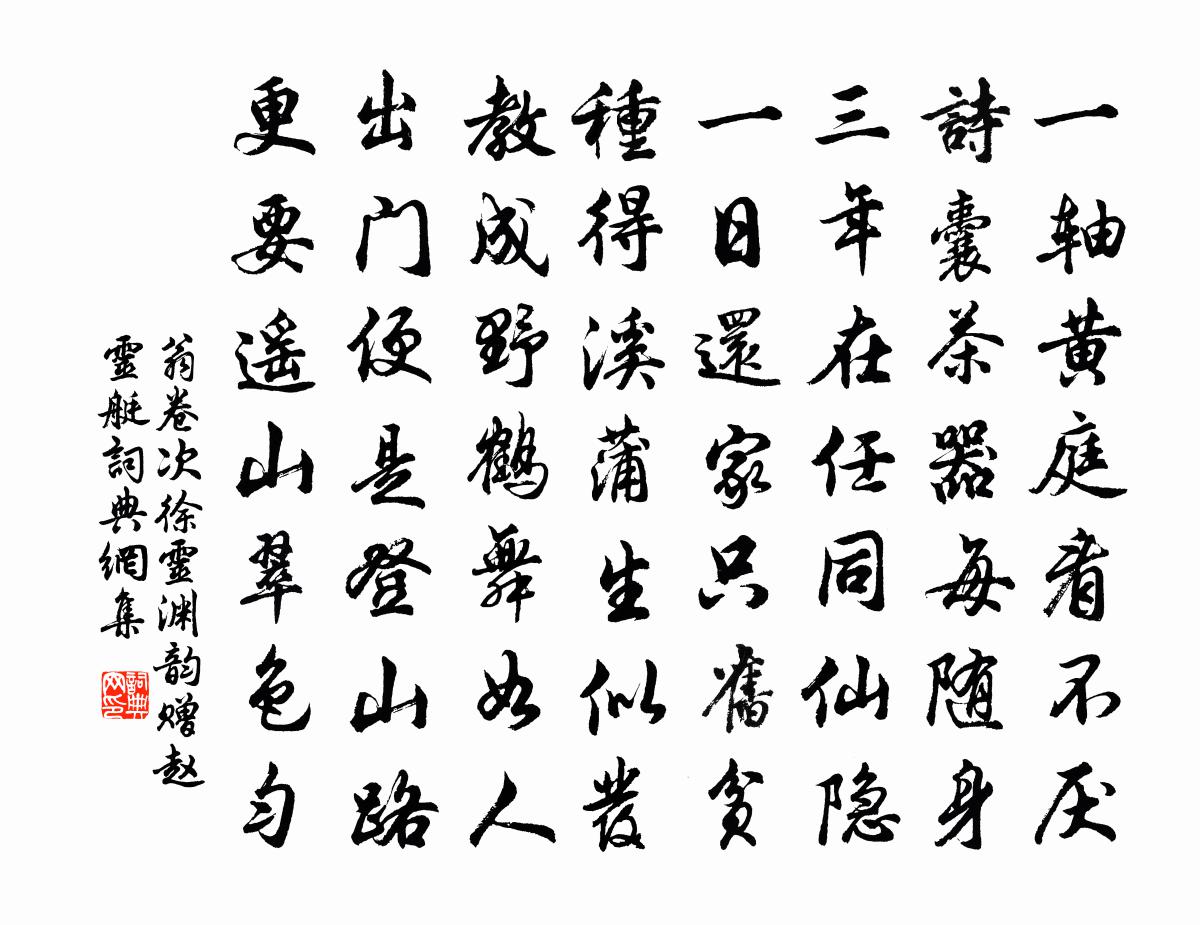 一轴黄庭看不厌
詩囊茶器每随身
三年在任同仙隐
一日還家只舊貧
種得溪蒲生似髮
教成野鶴舞如人
出门便是登山路
更要遥山翠色匀
翁卷次徐靈渊韵赠赵
靈艇詞典網集
詞典网印